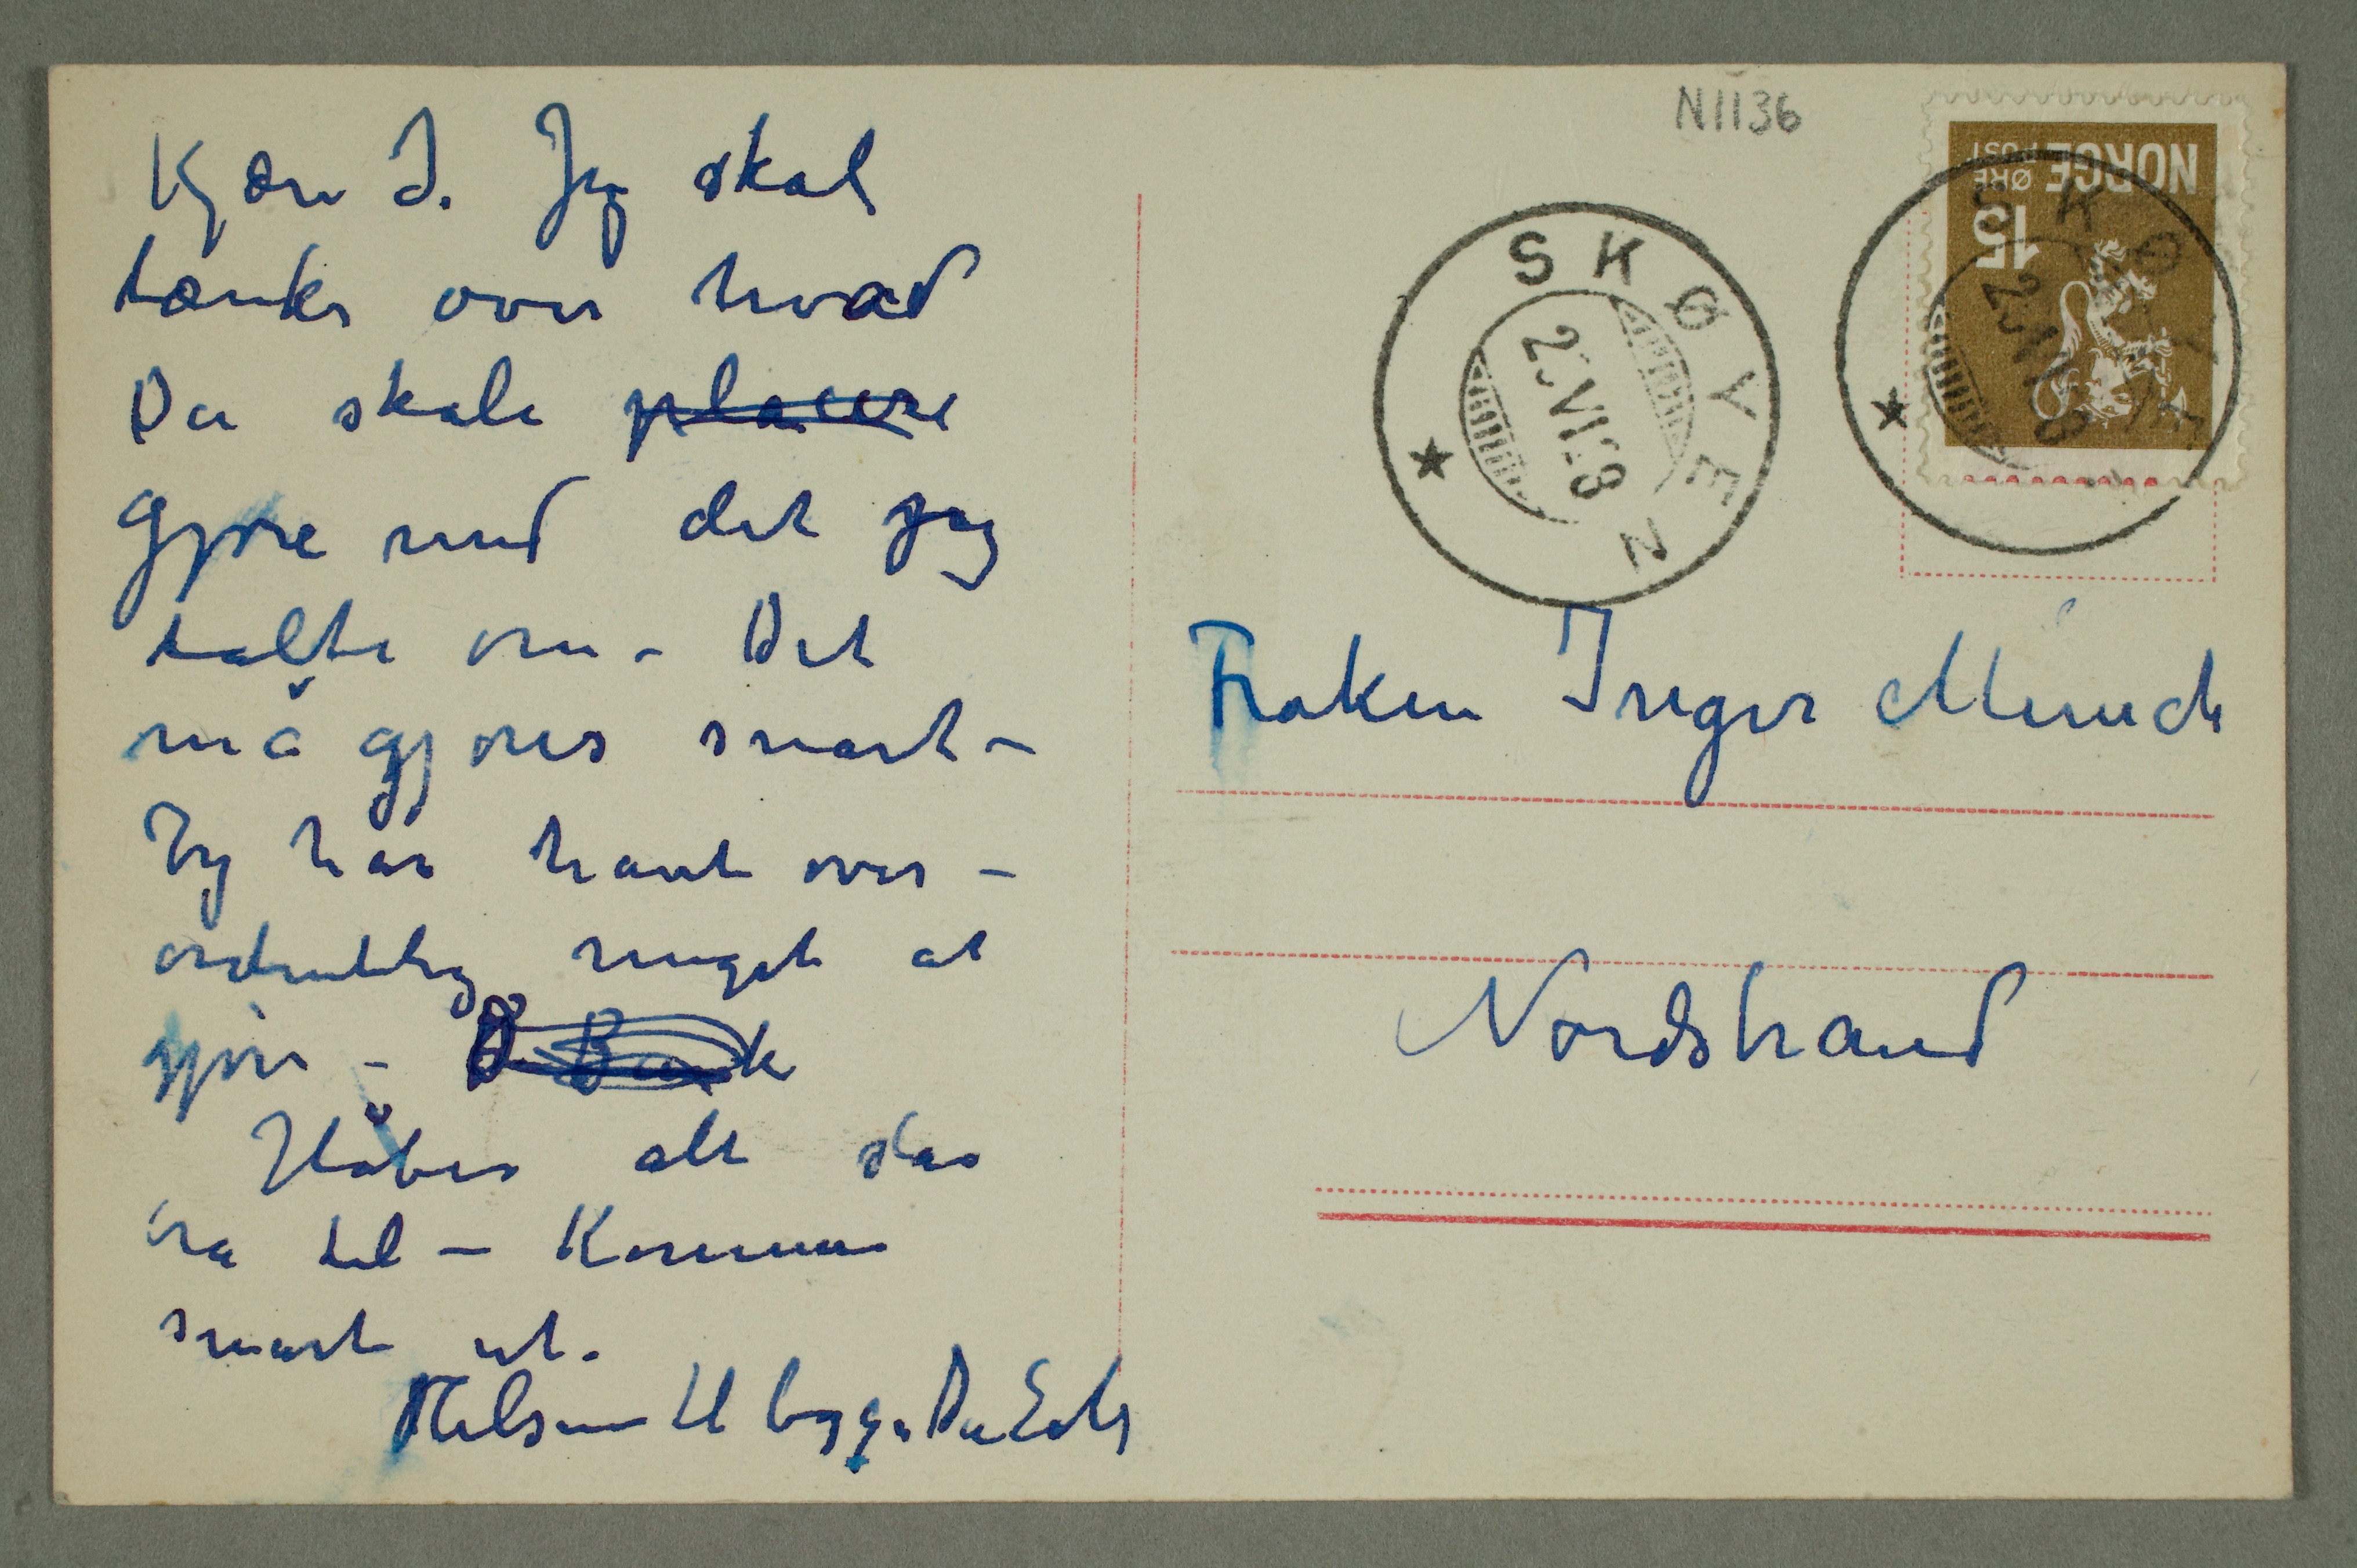 Kjære I. Jeg skal
tænke over hvad
Du skale placere
gjøre med det jeg
talte om – Det
må gjøres snart –
Jeg har havt over –
ordentlig meget at
gjøre – D Bank
Håber alt står
bra til – Kommer
snart ut.
Hilsen til begge Din Edv
N1136
NORGE
POST
ØRE
15
SKØYEN
VI 28
SKØYEN
Frøken Inger Munch
Nordstrand